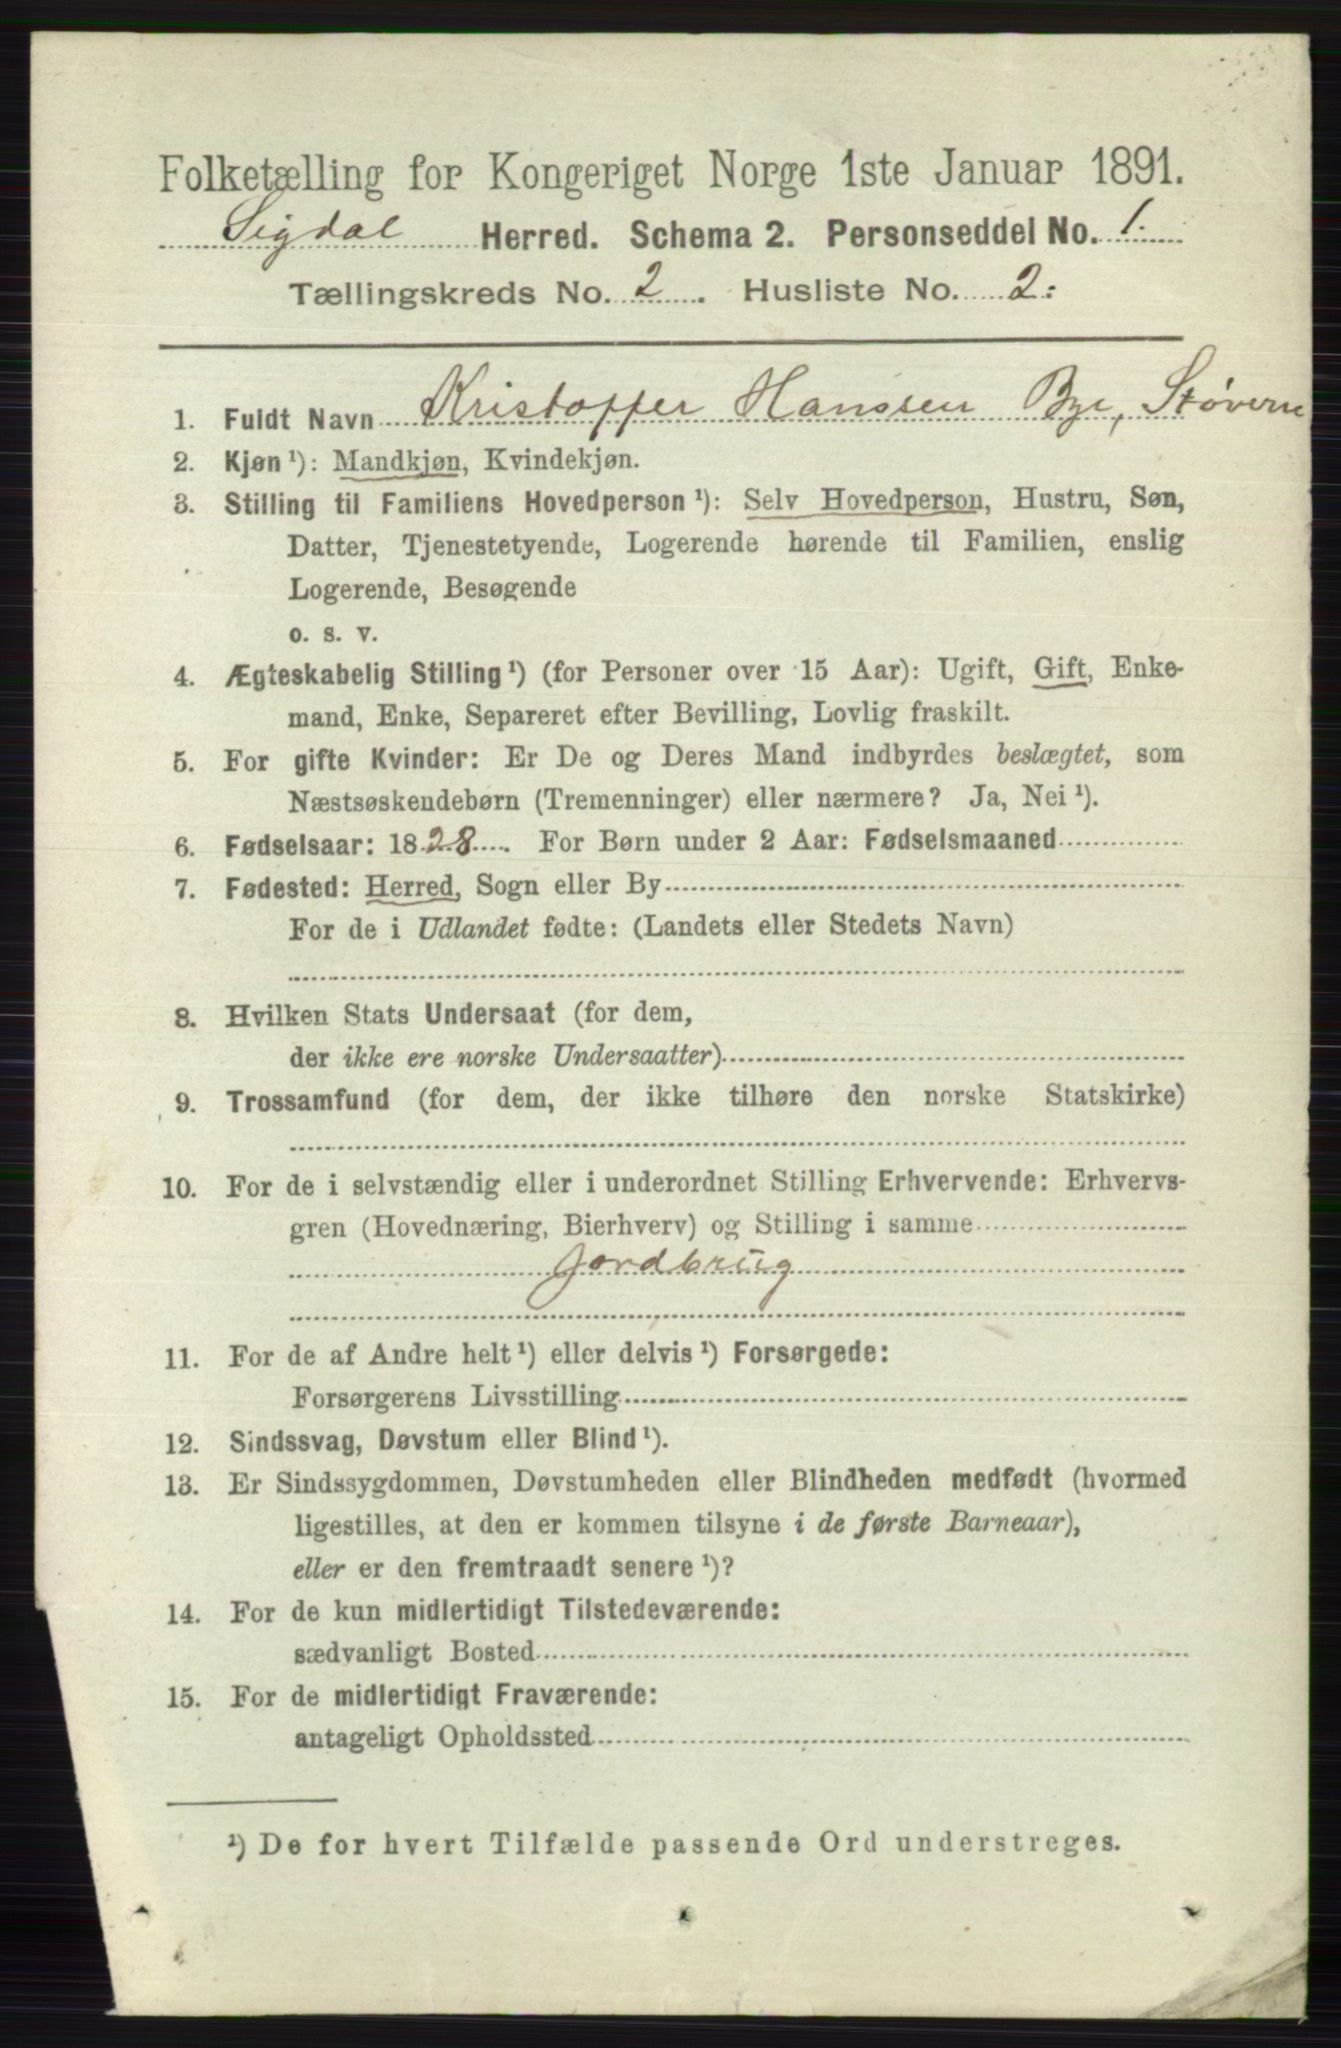 Folketælling for Kongeriget Norge 1ste Januar 1891.
Sigdal Herred. Schema 2. Personseddel No. 1.
Tællingskreds No. 2. Husliste No. 2:
1. Fuldt Navn Kristoffer Hanssen Bye, Støverne
2. Kjøn ¹): Mandkjøn, Kvindekjøn.
3. Stilling til Familiens Hovedperson ¹): Selv Hovedperson, Hustru, Søn,
Datter, Tjenestetyende, Logerende hørende til Familien, enslig
Logerende, Besøgende
o. s. v.
4. Ægteskabelig Stilling ¹) (for Personer over 15 Aar): Ugift, Gift, Enke-
mand, Enke, Separeret efter Bevilling, Lovlig fraskilt.
5. For gifte Kvinder: Er De og Deres Mand indbyrdes beslægtet, som
Næstsøskendebørn (Tremenninger) eller nærmere? Ja, Nei ¹).
6. Fødselsaar: 1828. For Børn under 2 Aar: Fødselsmaaned
7. Fødested: Herred, Sogn eller By
For de i Udlandet fødte: (Landets eller Stedets Navn)
8. Hvilken Stats Undersaat (for dem,
der ikke ere norske Undersaatter)
9. Trossamfund (for dem, der ikke tilhøre den norske Statskirke)
10. For de i selvstændig eller i underordnet Stilling Erhvervende: Erhvervs-
gren (Hovednæring, Bierhverv) og Stilling i samme
Jordbrug
11. For de af Andre helt ¹) eller delvis ¹) Forsørgede:
Forsørgerens Livsstilling
12. Sindssvag, Døvstum eller Blind ¹).
13. Er Sindssygdommen, Døvstumheden eller Blindheden medfødt (hvormed
ligestilles, at den er kommen tilsyne i de første Barneaar),
eller er den fremtraadt senere ¹)?
14. For de kun midlertidigt Tilstedeværende:
sædvanligt Bosted
15. For de midlertidigt Fraværende:
antageligt Opholdssted
¹) De for hvert Tilfælde passende Ord understreges.